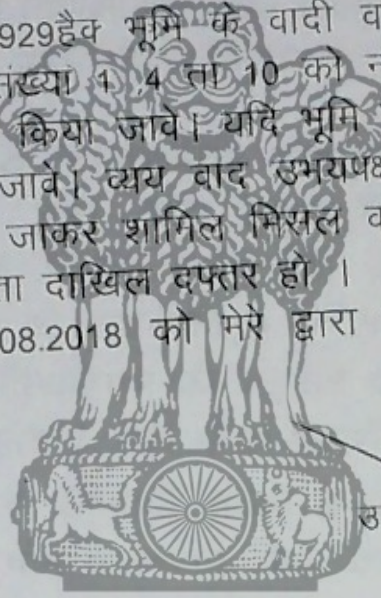 929हैक भूमि के वादी व
संख्या 1 ,4 ता 10 को न
किया जावे। यदि भूमि
जावे। व्यय वाद उभयपक्ष
जाकर शामिल मिसल व
ता दाखिल दफ्तर हो ।
08.2018 को मेरे द्वारा
उ